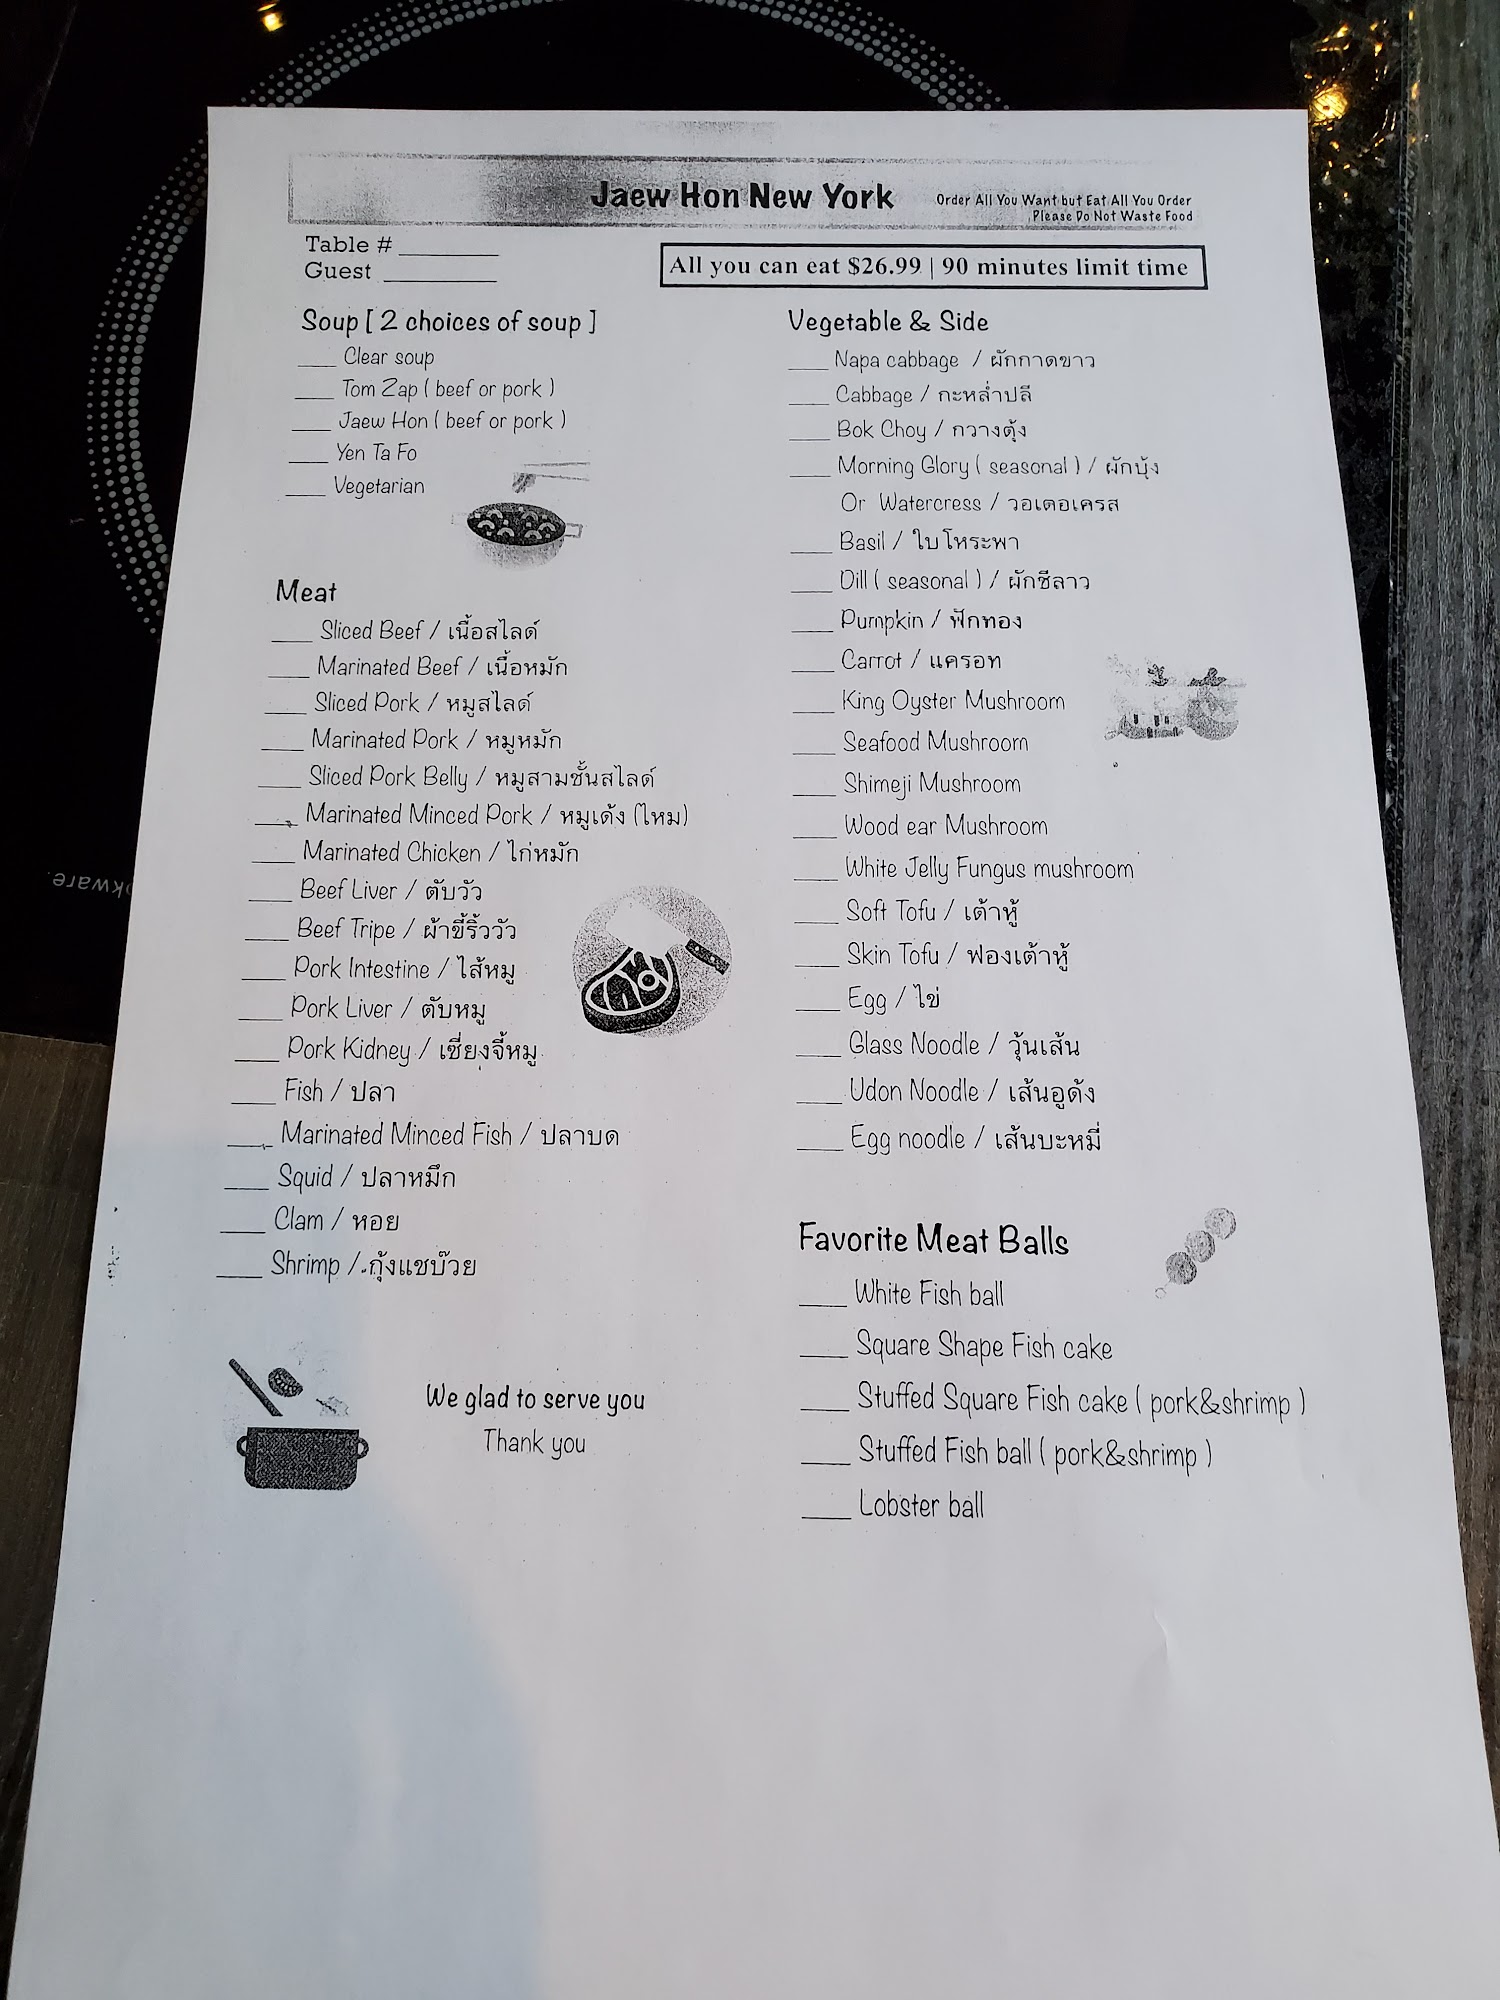 Jaew Hon New York
Order All You Want but Eat All You Order
Please Do Not Waste Food
Table # ________
Guest ________
All you can eat $26.99 | 90 minutes limit time
Soup [ 2 choices of soup ]
___ Clear soup
___ Tom Zap ( beef or pork )
___ Jaew Hon ( beef or pork )
___ Yen Ta Fo
___ Vegetarian
Meat
___ Sliced Beef / เนื้อสไลด์
___ Marinated Beef / เนื้อหมัก
___ Sliced Pork / หมูสไลด์
___ Marinated Pork / หมูหมัก
___ Sliced Pork Belly / หมูสามชั้นสไลด์
___ Marinated Minced Pork / หมูเด้ง (ไหม)
___ Marinated Chicken / ไก่หมัก
___ Beef Liver / ตับวัว
___ Beef Tripe / ผ้าขี้ริ้ววัว
___ Pork Intestine / ไส้หมู
___ Pork Liver / ตับหมู
___ Pork Kidney / เซี่ยงจี้หมู
___ Fish / ปลา
___ Marinated Minced Fish / ปลาบด
___ Squid / ปลาหมึก
___ Clam / หอย
___ Shrimp / กุ้งแชบ๊วย
We glad to serve you
Thank you
Vegetable & Side
___ Napa cabbage / ผักกาดขาว
___ Cabbage / กะหล่ำปลี
___ Bok Choy / กวางตุ้ง
___ Morning Glory ( seasonal ) / ผักบุ้ง
Or Watercress / วอเตอเครส
___ Basil / ใบโหระพา
___ Dill ( seasonal ) / ผักชีลาว
___ Pumpkin / ฟักทอง
___ Carrot / แครอท
___ King Oyster Mushroom
___ Seafood Mushroom
___ Shimeji Mushroom
___ Wood ear Mushroom
___ White Jelly Fungus mushroom
___ Soft Tofu / เต้าหู้
___ Skin Tofu / ฟองเต้าหู้
___ Egg / ไข่
___ Glass Noodle / วุ้นเส้น
___ Udon Noodle / เส้นอูด้ง
___ Egg noodle / เส้นบะหมี่
Favorite Meat Balls
___ White Fish ball
___ Square Shape Fish cake
___ Stuffed Square Fish cake ( pork&shrimp )
___ Stuffed Fish ball ( pork&shrimp )
___ Lobster ball